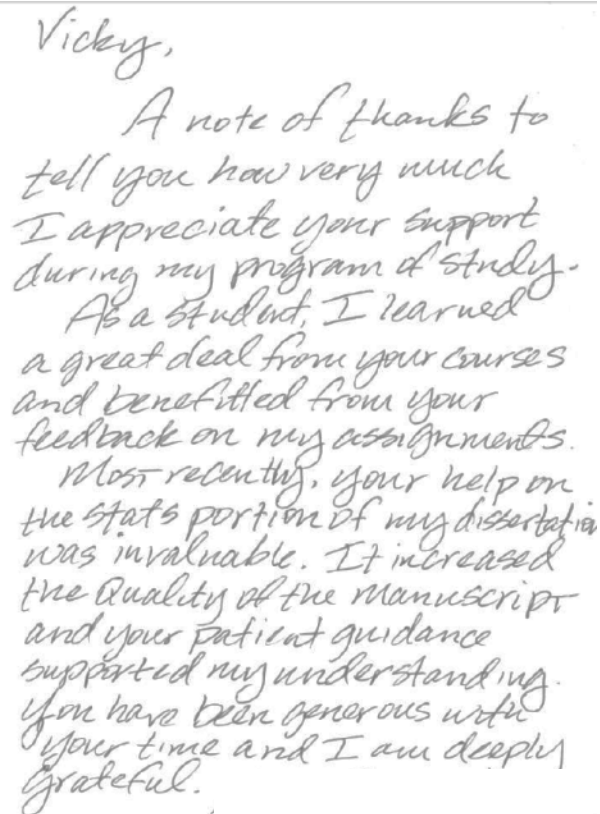 Vicky,
A note of thanks to
tell you how very much
I appreciate your support
during my program of study.
As a student, I learned
a great deal from your courses
and benefitted from your
feedback on my assignments.
Most recently, your help on
the stats portion of my dissertation
was invaluable. It increased
the Quality of the manuscript
and your patient guidance
supported my understanding.
You have been generous with
your time and I am deeply
grateful.